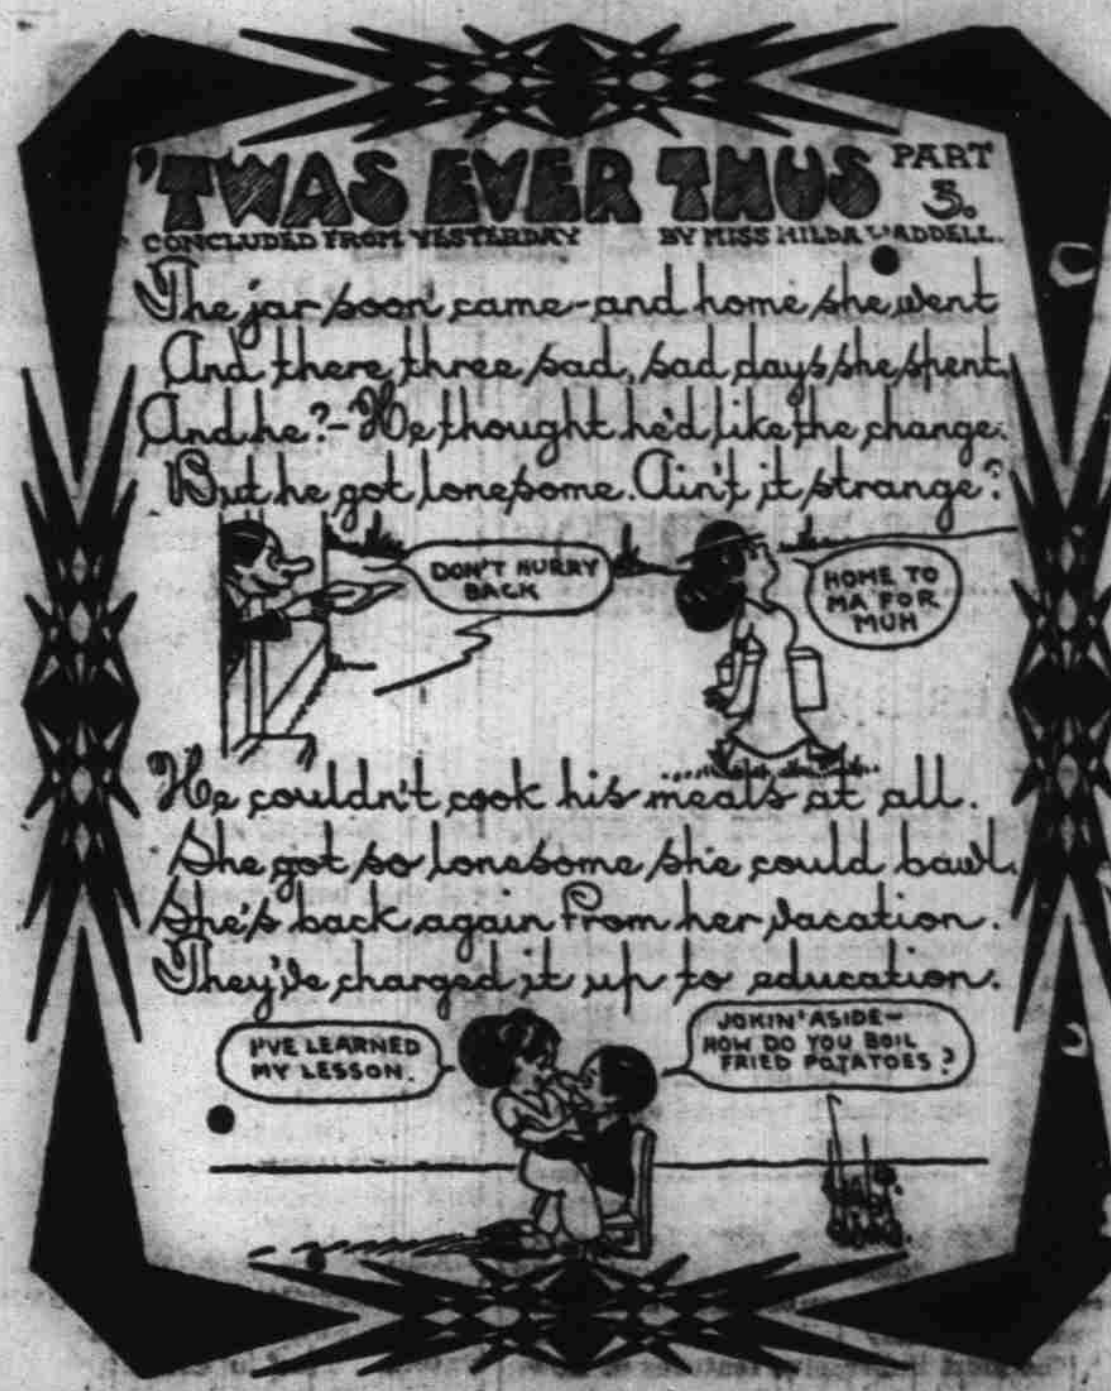 'TWAS EVER THUS PART 3.
CONCLUDED FROM YESTERDAY BY MISS HILDA WADDELL.
The jar soon came-and home she went
And there three sad, sad days she spent.
And he?-He thought he'd like the change.
But he got lonesome. Ain't it strange?
DON'T HURRY
BACK
HOME TO
MA FOR
MUH
He couldn't cook his meals at all.
She got so lonesome she could bawl.
She's back again from her vacation.
They've charged it up to education.
I'VE LEARNED
MY LESSON.
JOKIN' ASIDE-
HOW DO YOU BOIL
FRIED POTATOES?